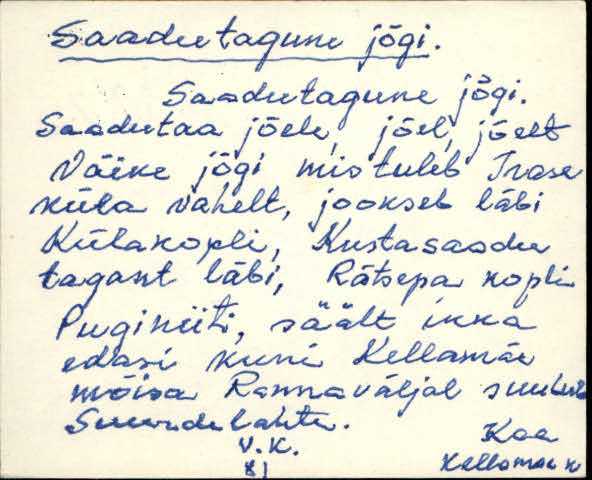 Saadutagune jõgi.
Saadutagune jõgi.
Saadutaa jõele, jõel, jõelt
Väike jõgi mis tuleb Irase
küla vahelt, jookseb läbi
Külakopli, Kustasaadu
tagant läbi, Rätsepa kopli
Puginiiti, säält ikka
edasi kuni Kellamäe
mõisa Rannaväljal suubub
Suurdelahte.
V.K. Kaa
81 Kellamäe k